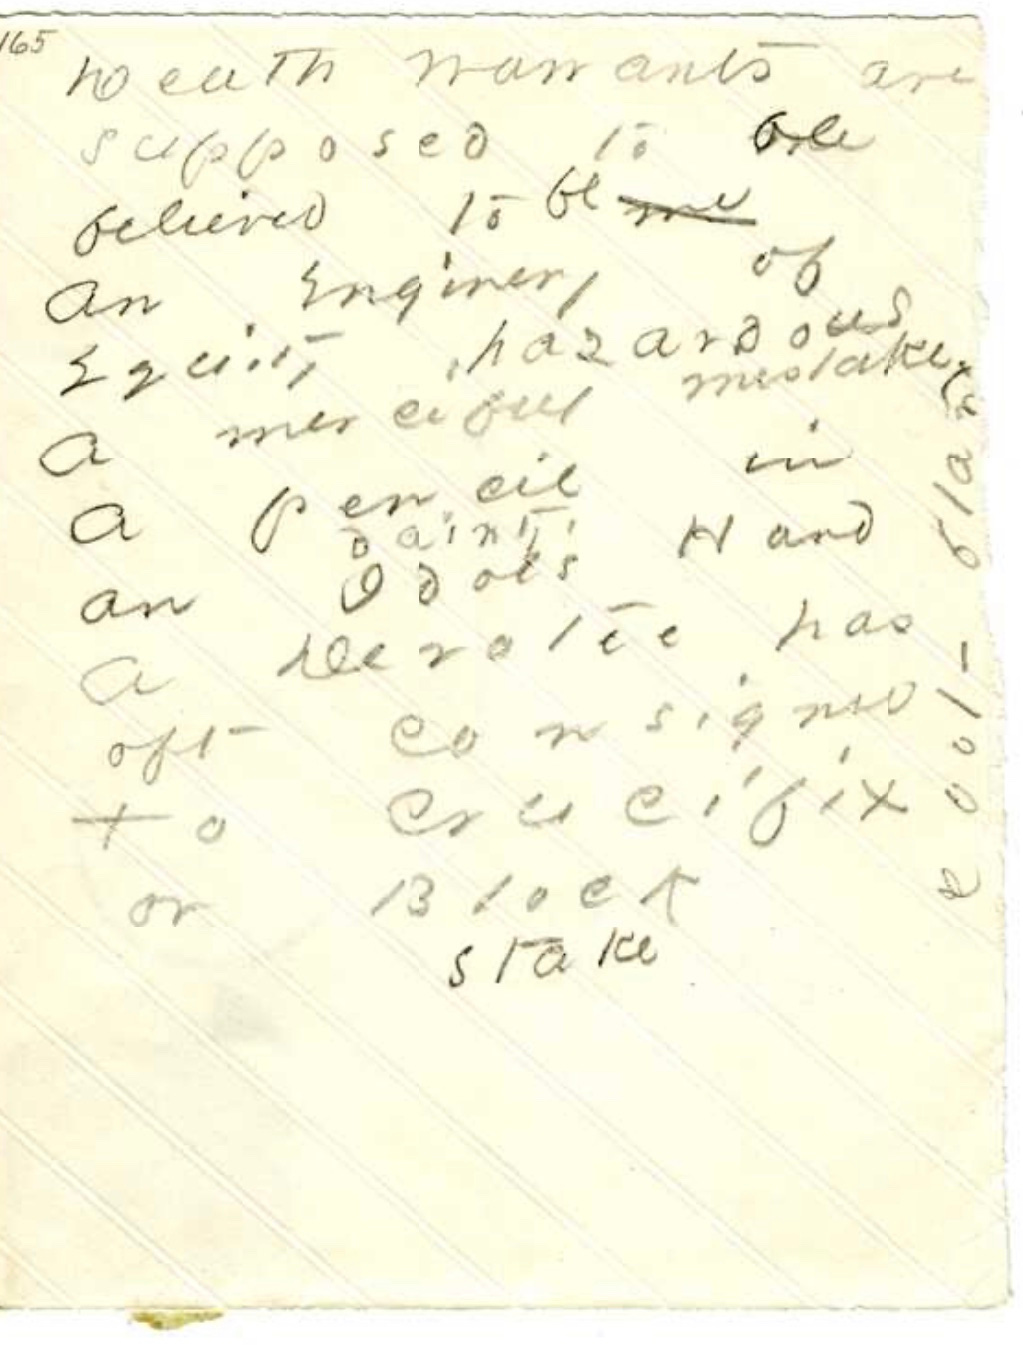 165
Death warrants are
supposed to be
believed to be ~~me~~
An Enginery of
Equity, hazardous
A merciful mistake
A pencil in
dainty
an Idol's Hand
A Devotee has
oft consigned
to Crucifix
or Block
stake
cool - bland